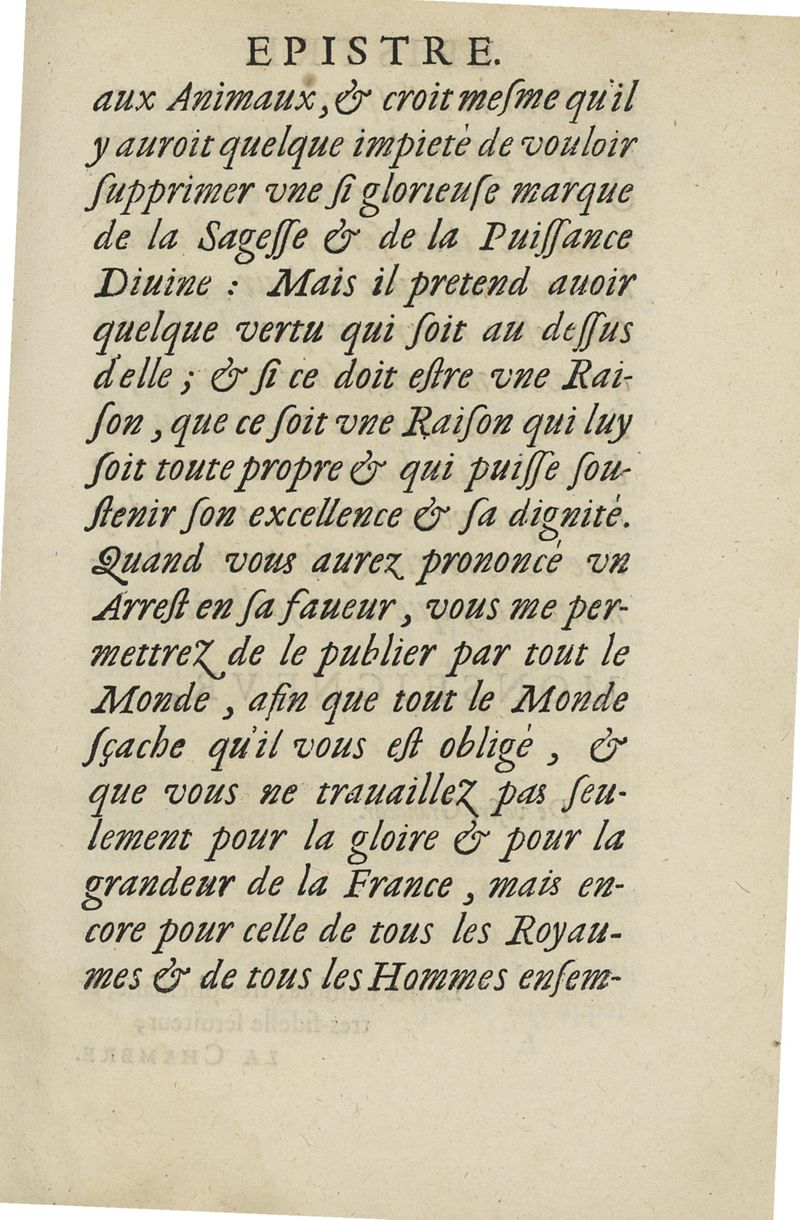 EPISTRE.
aux Animaux, & croit meſme qu'il
y auroit quelque impieté de vouloir
ſupprimer vne ſi glorieuſe marque
de la Sageſſe & de la Puiſſance
Diuine : Mais il pretend auoir
quelque vertu qui ſoit au deſſus
d'elle ; & ſi ce doit eſtre vne Rai-
ſon , que ce ſoit vne Raiſon qui luy
ſoit toute propre & qui puiſſe ſou-
ſtenir ſon excellence & ſa dignité.
Quand vous aurez prononcé vn
Arreſt en ſa faueur , vous me per-
mettrez de le publier par tout le
Monde , afin que tout le Monde
ſçache qu'il vous eſt obligé , &
que vous ne trauaillez pas ſeu-
lement pour la gloire & pour la
grandeur de la France , mais en-
core pour celle de tous les Royau-
mes & de tous les Hommes enſem-